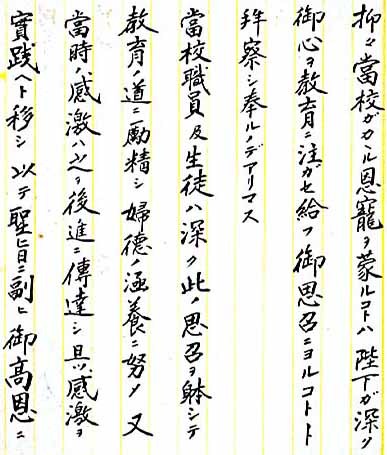 抑々當校ガカヽル恩寵ヲ蒙ルコトハ陛下ガ深ク
御心ヲ教育ニ注ガセ給フ御思召ニヨルコトヽ
拜察シ奉ルノデアリマス
當校職員及生徒ハ深ク此ノ思召ヲ躰シテ
教育ノ道ニ勵精シ婦德ノ涵養ニ努メ又
當時ノ感激ハ之ヲ後進ニ傳達シ且ツ感激ヲ
實踐ヘト移シ以テ聖旨ニ副ヒ御高恩ニ